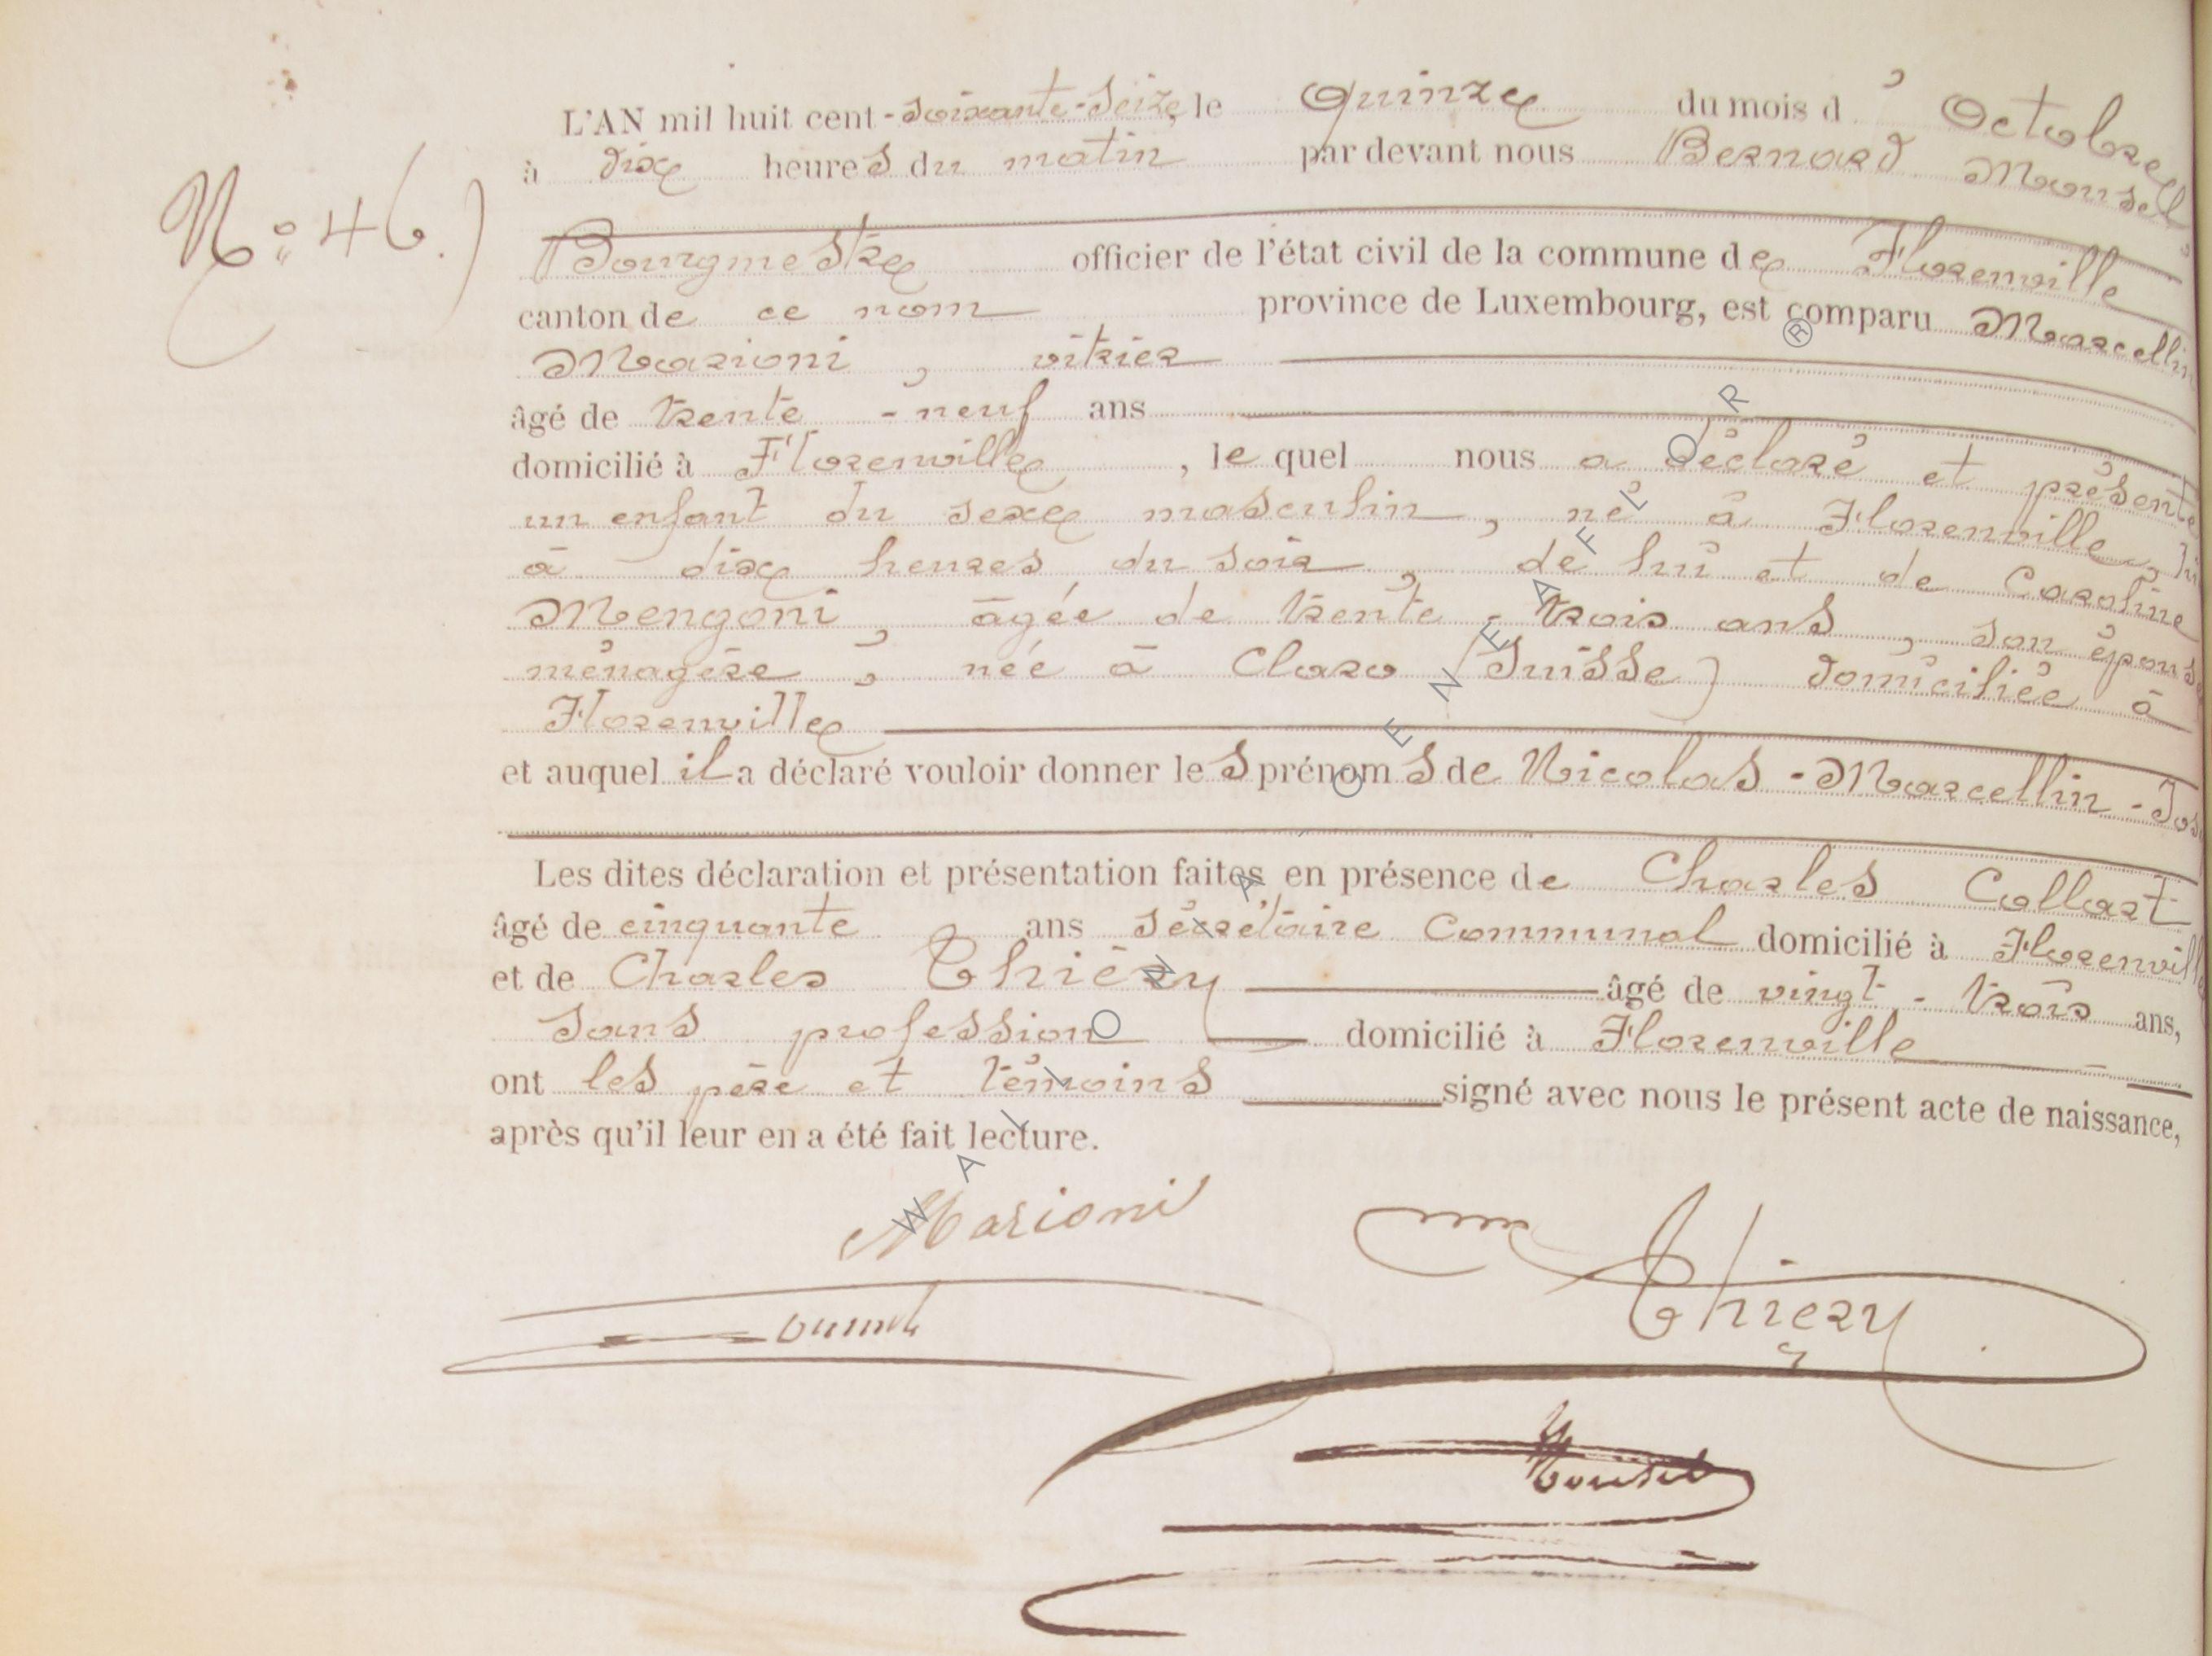 N° 46.)
L'AN mil huit cent-soixante-seize, le quinze du mois d'Octobre
à dix heures du matin par devant nous Bernard Mousel
Bourgmestre officier de l'état civil de la commune de Florenville
canton de ce nom province de Luxembourg, est comparu Marcellin
Marioni, vitrier
âgé de trente-neuf ans
domicilié à Florenville, le quel nous a déclaré et présenté
un enfant du sexe masculin, né à Florenville,
à dix heures du soir, de lui et de Caroline
Mengoni, âgée de trente-trois ans, son épouse
ménagère, née à Claro (Suisse) domiciliée à
Florenville
et auquel il a déclaré vouloir donner les prénoms de Nicolas-Marcellin-Jos
Les dites déclaration et présentation faites en présence de Charles Collart
âgé de cinquante ans secrétaire communal domicilié à Florenville
et de Charles Thiéry âgé de vingt-trois ans,
sans profession domicilié à Florenville
ont les père et témoins signé avec nous le présent acte de naissance,
après qu'il leur en a été fait lecture.
Marioni
Thiery
Mousel
WALLONNAX GENEAFELOR ®